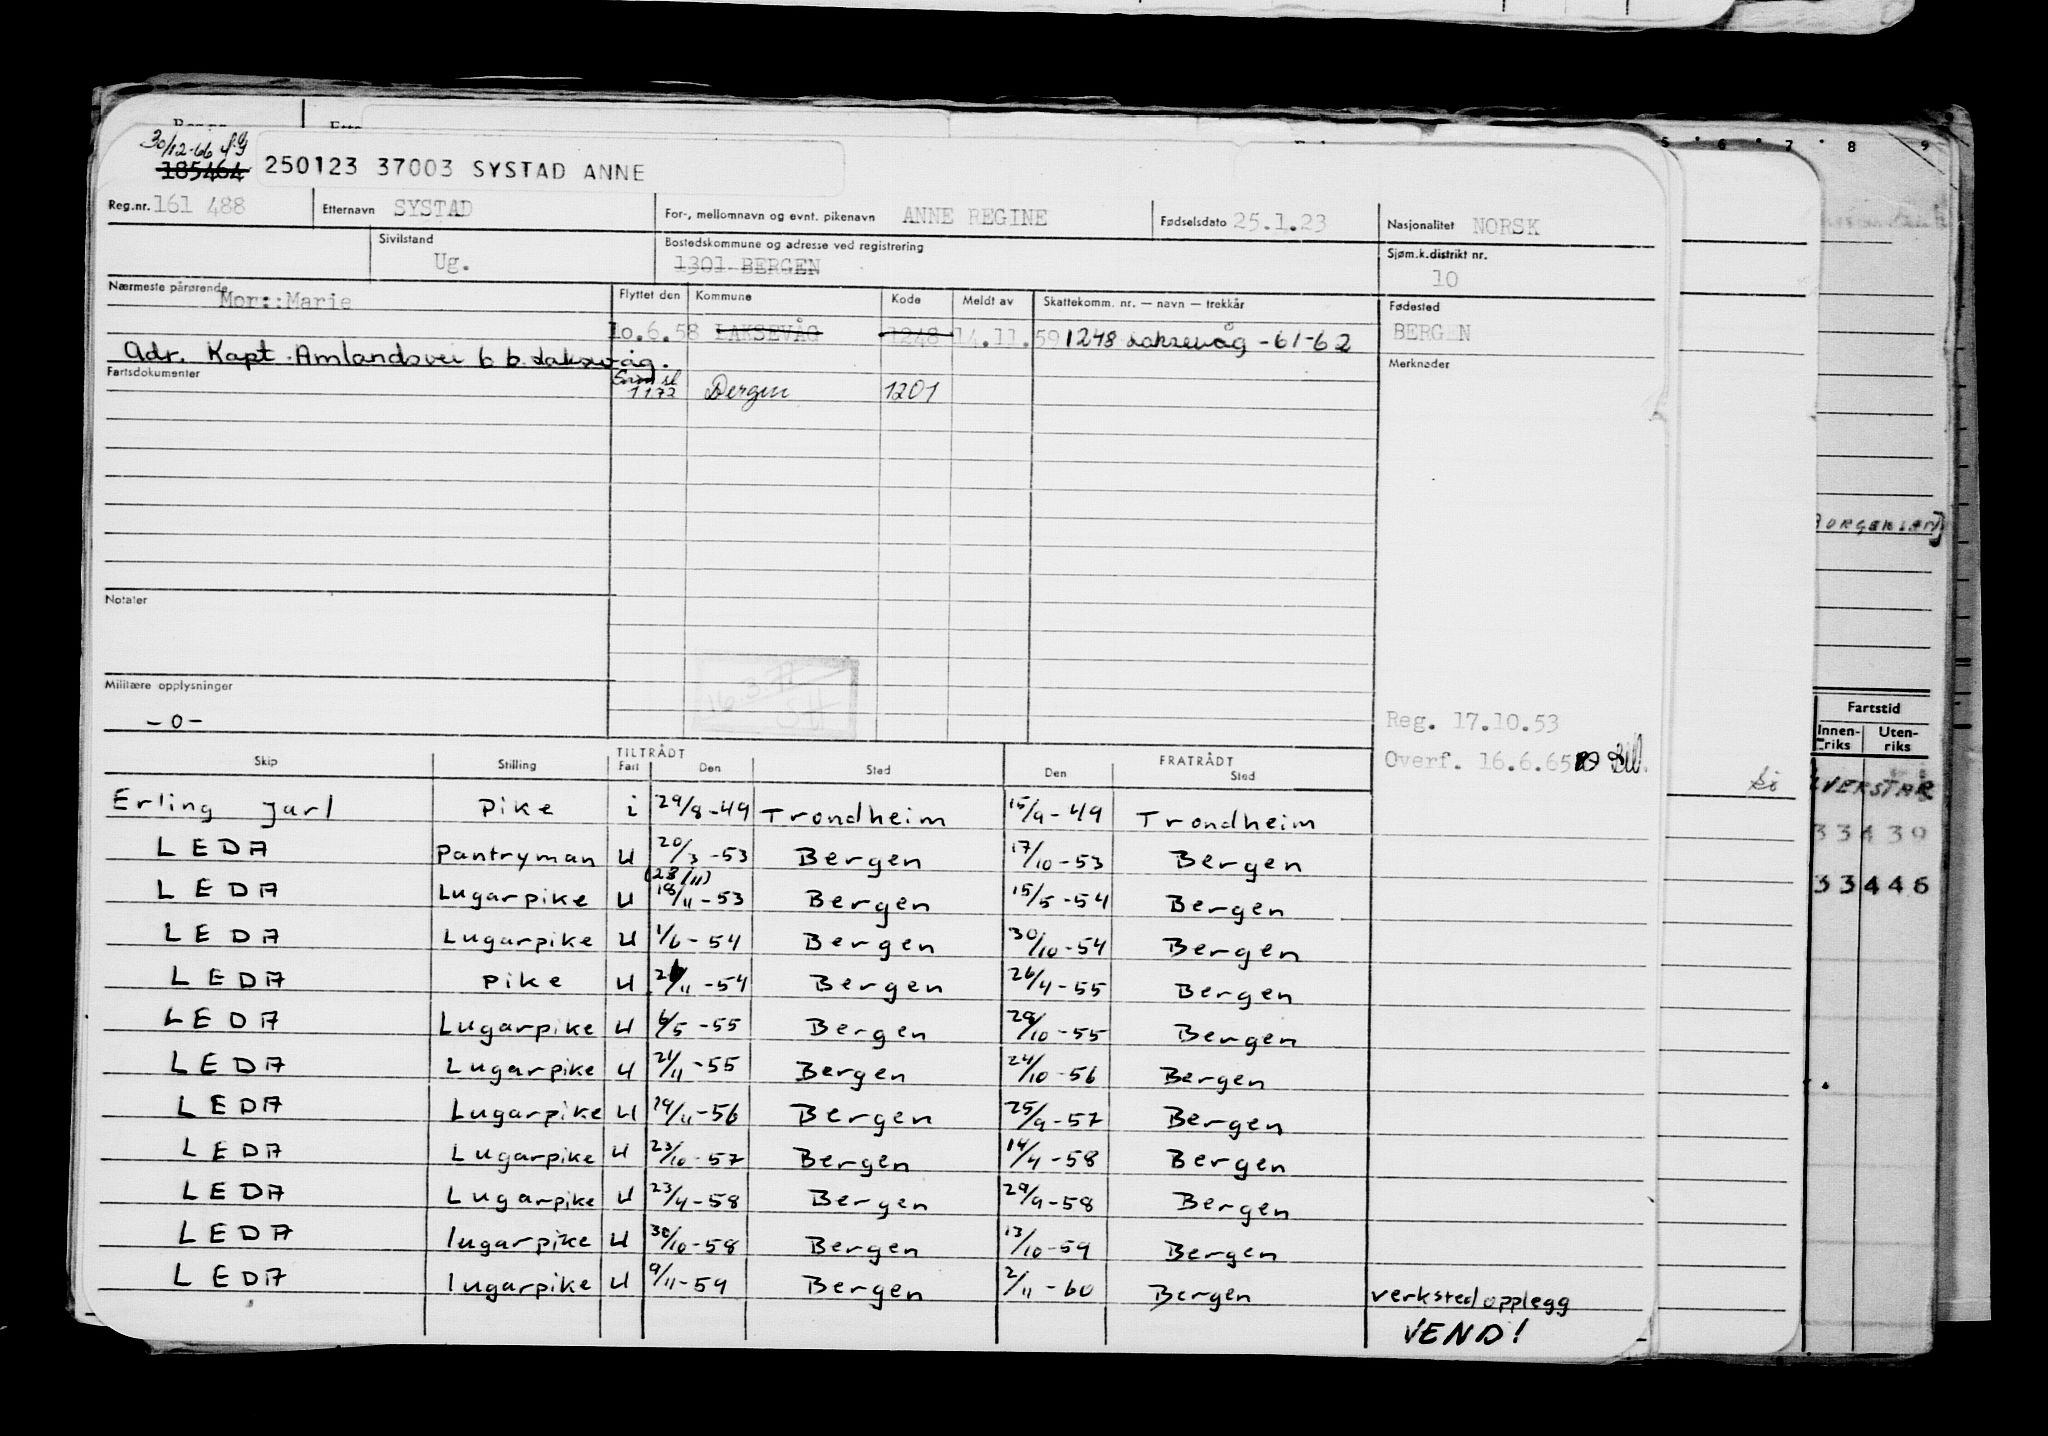 30/12-66
185464 250123 37003 SYSTAD ANNE
Reg.nr. 161 488 Etternavn SYSTAD For-, mellomnavn og evnt. pikenavn ANNE REGINE Fødselsdato 25.1.23 Nasjonalitet NORSK
Sivilstand Ug. Bostedskommune og adresse ved registrering 1301 BERGEN Sjøm.k.distrikt nr. 10
Nærmeste pårørende Mor: Marie Flyttet den Kommune Kode Meldt av Skattekomm. nr. — navn — trekkår Fødested BERGEN
10.6.58 LAKSEVÅG 1248 14.11.59 1248 Laksevåg -61-62
Adr. Kapt. Amlandsvei 6 b. Laksevåg.
Fartsdokumenter 1172 Bergen 1201 Merknader
Notater
Militære opplysninger
-0-
16.3.77
SH
Reg. 17.10.53
Overf. 16.6.65
Skip Stilling TILTRÅDT Fart Den Sted FRATRÅDT Den Sted
Erling Jarl pike i 29/8-49 Trondheim 15/9-49 Trondheim
LEDA pantryman U 20/3-53 Bergen 17/10-53 Bergen
(23/11)
LEDA Lugarpike U 18/11-53 Bergen 15/5-54 Bergen
LEDA Lugarpike U 1/6-54 Bergen 30/10-54 Bergen
LEDA pike U 26/11-54 Bergen 26/4-55 Bergen
LEDA Lugarpike U 6/5-55 Bergen 28/10-55 Bergen
LEDA Lugarpike U 21/11-55 Bergen 24/10-56 Bergen
LEDA Lugarpike U 29/11-56 Bergen 25/9-57 Bergen
LEDA Lugarpike U 23/10-57 Bergen 14/4-58 Bergen
LEDA Lugarpike U 23/4-58 Bergen 29/9-58 Bergen
LEDA lugarpike U 30/10-58 Bergen 13/10-59 Bergen
LEDA lugarpike U 9/11-59 Bergen 2/11-60 Bergen verkstedopplegg
VEND!
5 6 7 8 9
Fartstid
Innenriks Utenriks
33439
33446